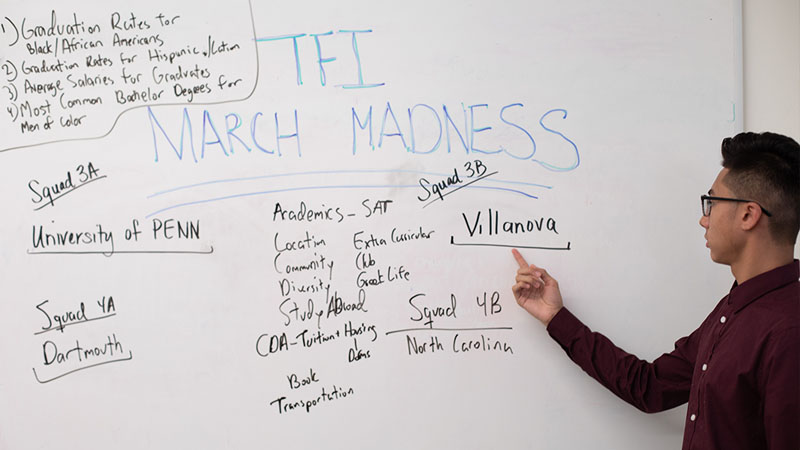 1) Graduation Rates for
Black/African Americans
2) Graduation Rates for Hispanic
3) Average Salaries for Graduates
4) Most Common Bachelor Degrees for
Men of Color
TFI
MARCH MADNESS
Squad 3A
University of PENN
Squad 4A
Dartmouth
Academics - SAT
Location Extra Curricular
Community Club
Diversity Greek Life
Study Abroad
COA - Tuition + Housing
Dorms
Book
Transportation
Squad 3B
Villanova
Squad 4B
North Carolina